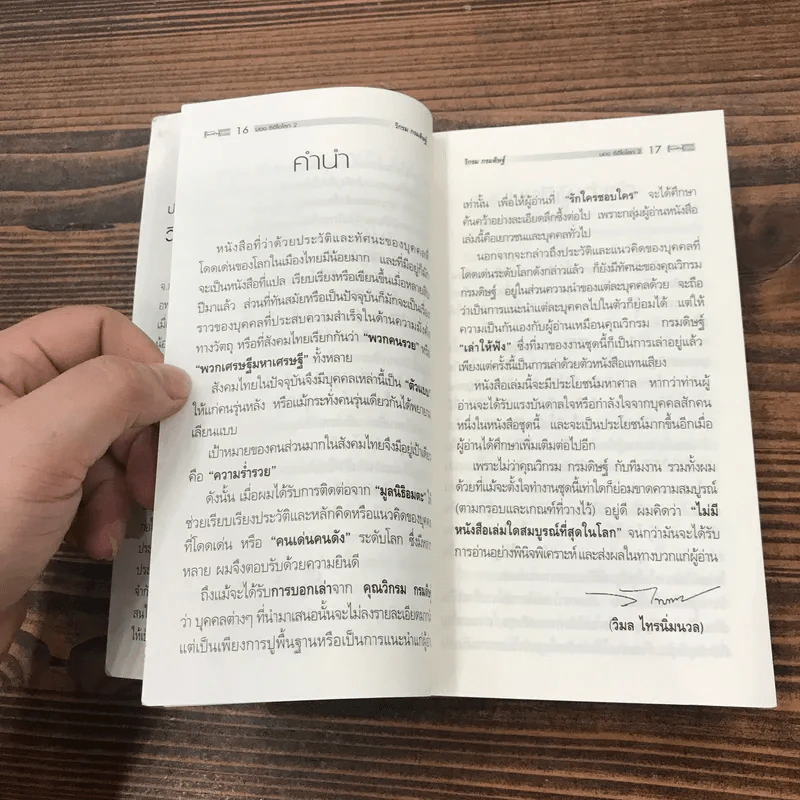 16 มอง ซีอีโอโลก 2 วิกรม กรมดิษฐ์
คำนำ
หนังสือที่ว่าด้วยประวัติและทัศนะของบุคคลที่
โดดเด่นของโลกในเมืองไทยมีน้อยมาก และที่มีอยู่ก็มัก
จะเป็นหนังสือที่แปล เรียบเรียงหรือเขียนขึ้นเมื่อหลายสิบ
ปีมาแล้ว ส่วนที่ทันสมัยหรือเป็นปัจจุบันก็มักจะเป็นเรื่อง
ราวของบุคคลที่ประสบความสำเร็จในด้านความมั่งคั่ง
ทางวัตถุ หรือที่สังคมไทยเรียกกันว่า “พวกคนรวย” หรือ
“พวกเศรษฐีมหาเศรษฐี” ทั้งหลาย
สังคมไทยในปัจจุบันจึงมีบุคคลเหล่านี้เป็น “ตัวแบบ”
ให้แก่คนรุ่นหลัง หรือแม้กระทั่งคนรุ่นเดียวกันได้พยายาม
เลียนแบบ
เป้าหมายของคนส่วนมากในสังคมไทยจึงมีอยู่เป้าเดียว
คือ “ความร่ำรวย”
ดังนั้น เมื่อผมได้รับการติดต่อจาก “มูลนิธิอมตะ” ให้
ช่วยเรียบเรียงประวัติและหลักคิดหรือแนวคิดของบุคคล
ที่โดดเด่น หรือ “คนเด่นคนดัง” ระดับโลก ซึ่งมีหลาก
หลาย ผมจึงตอบรับด้วยความยินดี
ถึงแม้จะได้รับการบอกเล่าจาก คุณวิกรม กรมดิษฐ์
ว่า บุคคลต่างๆ ที่นำมาเสนอนั้นจะไม่ลงรายละเอียดมากนัก
แต่เป็นเพียงการปูพื้นฐานหรือเป็นการแนะนำแก่ผู้อ่าน
วิกรม กรมดิษฐ์ มอง ซีอีโอโลก 2 17
เท่านั้น เพื่อให้ผู้อ่านที่ “รักใครชอบใคร” จะได้ศึกษา
ค้นคว้าอย่างละเอียดลึกซึ้งต่อไป เพราะกลุ่มผู้อ่านหนังสือ
เล่มนี้คือเยาวชนและบุคคลทั่วไป
นอกจากจะกล่าวถึงประวัติและแนวคิดของบุคคลที่
โดดเด่นระดับโลกดังกล่าวแล้ว ก็ยังมีทัศนะของคุณวิกรม
กรมดิษฐ์ อยู่ในส่วนความนำของแต่ละบุคคลด้วย จะถือ
ว่าเป็นการแนะนำแต่ละบุคคลไปในตัวก็ย่อมได้ แต่ให้
ความเป็นกันเองกับผู้อ่านเหมือนคุณวิกรม กรมดิษฐ์
“เล่าให้ฟัง” ซึ่งที่มาของงานชุดนี้ก็เป็นการเล่าอยู่แล้ว
เพียงแต่ครั้งนี้เป็นการเล่าด้วยตัวหนังสือแทนเสียง
หนังสือเล่มนี้จะมีประโยชน์มหาศาล หากว่าท่านผู้
อ่านจะได้รับแรงบันดาลใจหรือกำลังใจจากบุคคลสักคน
หนึ่งในหนังสือชุดนี้ และจะเป็นประโยชน์มากขึ้นอีกเมื่อ
ผู้อ่านได้ศึกษาเพิ่มเติมต่อไปอีก
เพราะไม่ว่าคุณวิกรม กรมดิษฐ์ กับทีมงาน รวมทั้งผม
ด้วยที่แม้จะตั้งใจทำงานชุดนี้เท่าใดก็ย่อมขาดความสมบูรณ์
(ตามกรอบและเกณฑ์ที่วางไว้) อยู่ดี ผมคิดว่า “ไม่มี
หนังสือเล่มใดสมบูรณ์ที่สุดในโลก” จนกว่ามันจะได้รับ
การอ่านอย่างพินิจพิเคราะห์ และส่งผลในทางบวกแก่ผู้อ่าน
(วิมล ไทรนิ่มนวล)